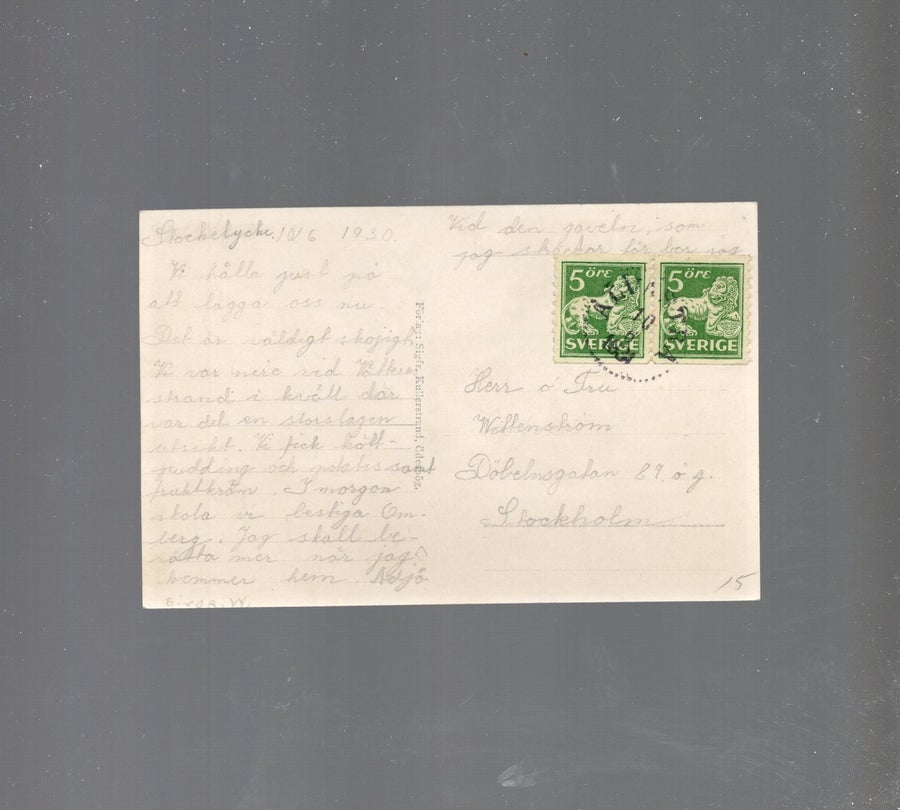 Stockelycke, 10/6 1930.
Vi hålla just på
att lägga oss nu.
Det är väldigt skojigt.
Vi var nere vid Vätterns
strand i kväll där
var det en storslagen
utsikt. Vi fick kött-
pudding och potatis samt
fruktkräm. I morgon
skola vi bestiga Om-
berg. Jag skall be-
rätta mer när jag
kommer hem. Adjö
Eivor. W.
Förlag: Sigfr. Kullerstrand, Ödeshög.
Vid den gaveln, som
jag skrickar för bor jag
5 ÖRE
SVERIGE
5 ÖRE
SVERIGE
Herr o Fru
Wittenström
Döbelnsgatan 87, ö g.
Stockholm
15